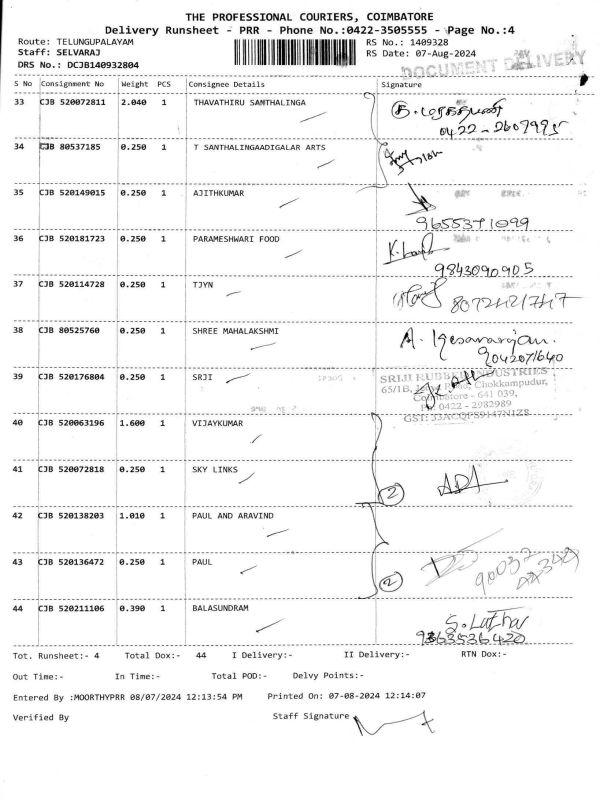 THE PROFESSIONAL COURIERS, COIMBATORE
Delivery Runsheet - PRR - Phone No.:0422-3505555 - Page No.:4
Route: TELUNGUPALAYAM
Staff: SELVARAJ
DRS No.: DCJB140932804
RS No.: 1409328
RS Date: 07-Aug-2024
DOCUMENT DELIVERY
S No Consignment No Weight PCS Consignee Details Signature
33 CJB 520072811 2.040 1 THAVATHIRU SANTHALINGA
0422-2607995
34 CJB 80537185 0.250 1 T SANTHALINGAADIGALAR ARTS
35 CJB 520149015 0.250 1 AJITHKUMAR
9655371099
36 CJB 520181723 0.250 1 PARAMESHWARI FOOD
9843090905
37 CJB 520114728 0.250 1 TJYN
38 CJB 80525760 0.250 1 SHREE MAHALAKSHMI
9042071640
39 CJB 520176804 0.250 1 SRJI
SRIJI RUBBER INDUSTRIES
65/1B, Chokkampudur,
Coimbatore - 641 039,
Ph: 0422 - 2982989
40 CJB 520063196 1.600 1 VIJAYKUMAR
41 CJB 520072818 0.250 1 SKY LINKS
2
42 CJB 520138203 1.010 1 PAUL AND ARAVIND
43 CJB 520136472 0.250 1 PAUL
2
44 CJB 520211106 0.390 1 BALASUNDRAM
9363536420
Tot. Runsheet:- 4 Total Dox:- 44 I Delivery:- II Delivery:- RTN Dox:-
Out Time:- In Time:- Total POD:- Delvy Points:-
Entered By :MOORTHYPRR 08/07/2024 12:13:54 PM Printed On: 07-08-2024 12:14:07
Verified By Staff Signature